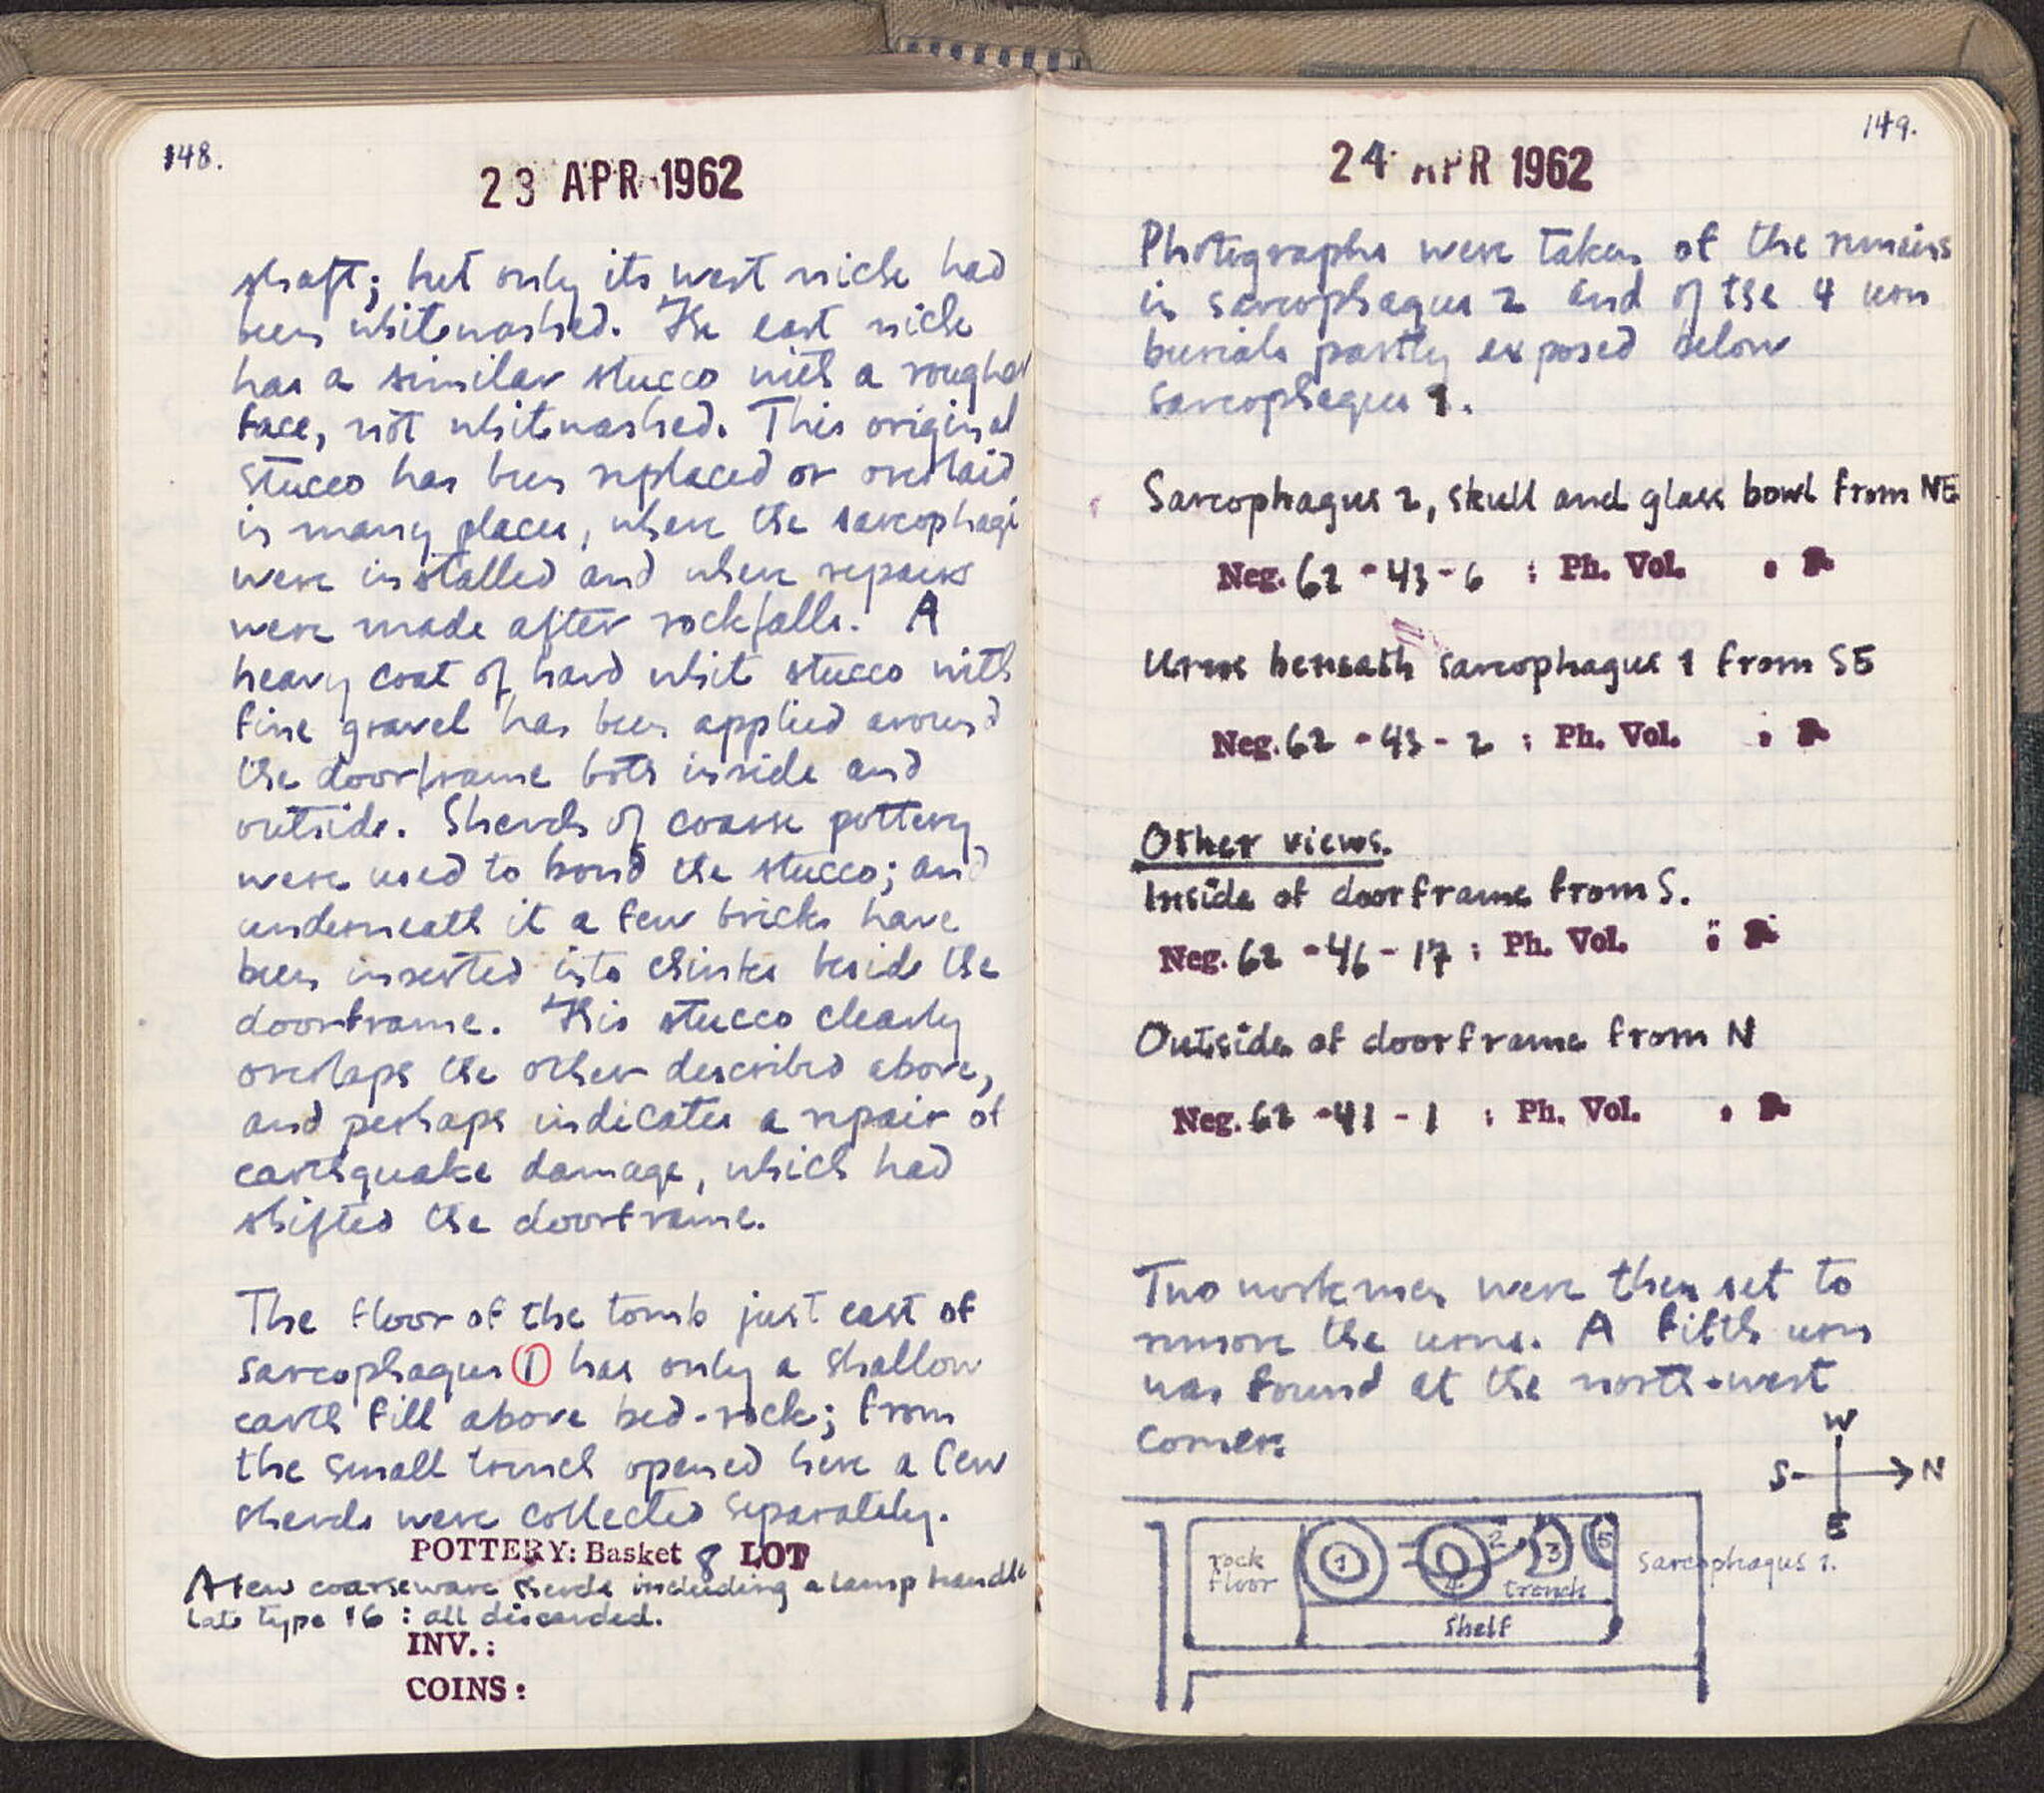 148.
23 APR 1962
shaft; but only its west niche had
been whitewashed. The east niche
has a similar stucco with a rougher
face, not whitewashed. This original
stucco has been replaced or overlaid
in many places, where the sarcophagi
were installed and where repairs
were made after rockfalls. A
heavy coat of hard white stucco with
fine gravel has been applied around
the doorframe both inside and
outside. Sherds of coarse pottery
were used to bond the stucco; and
underneath it a few bricks have
been inserted into chinks beside the
doorframe. This stucco clearly
overlaps the other described above,
and perhaps indicates a repair of
earthquake damage, which had
shifted the doorframe.
The floor of the tomb just east of
sarcophagus 1 has only a shallow
earth fill above bed-rock; from
the small trench opened here a few
sherds were collected separately.
POTTERY: Basket 8 LOT
A few coarseware sherds including a lamp handle
late type 16 : all discarded.
INV.:
COINS:
149.
24 APR 1962
Photographs were taken of the remains
in sarcophagus 2 and of the 4 urn
burials partly exposed below
sarcophagus 1.
Sarcophagus 2, skull and glass bowl from NE
Neg. 62 - 43 - 6 : Ph. Vol. :
Urns beneath sarcophagus 1 from SE
Neg. 62 - 43 - 2 : Ph. Vol. :
Other views.
Inside of doorframe from S.
Neg. 62 - 46 - 17 : Ph. Vol. :
Outside of doorframe from N
Neg. 62 - 41 - 1 : Ph. Vol. :
Two workmen were then set to
remove the urns. A fifth urn
was found at the north-west
corner.
W
S N
E
rock
floor
1
2
3
4
5
trench
shelf
Sarcophagus 1.